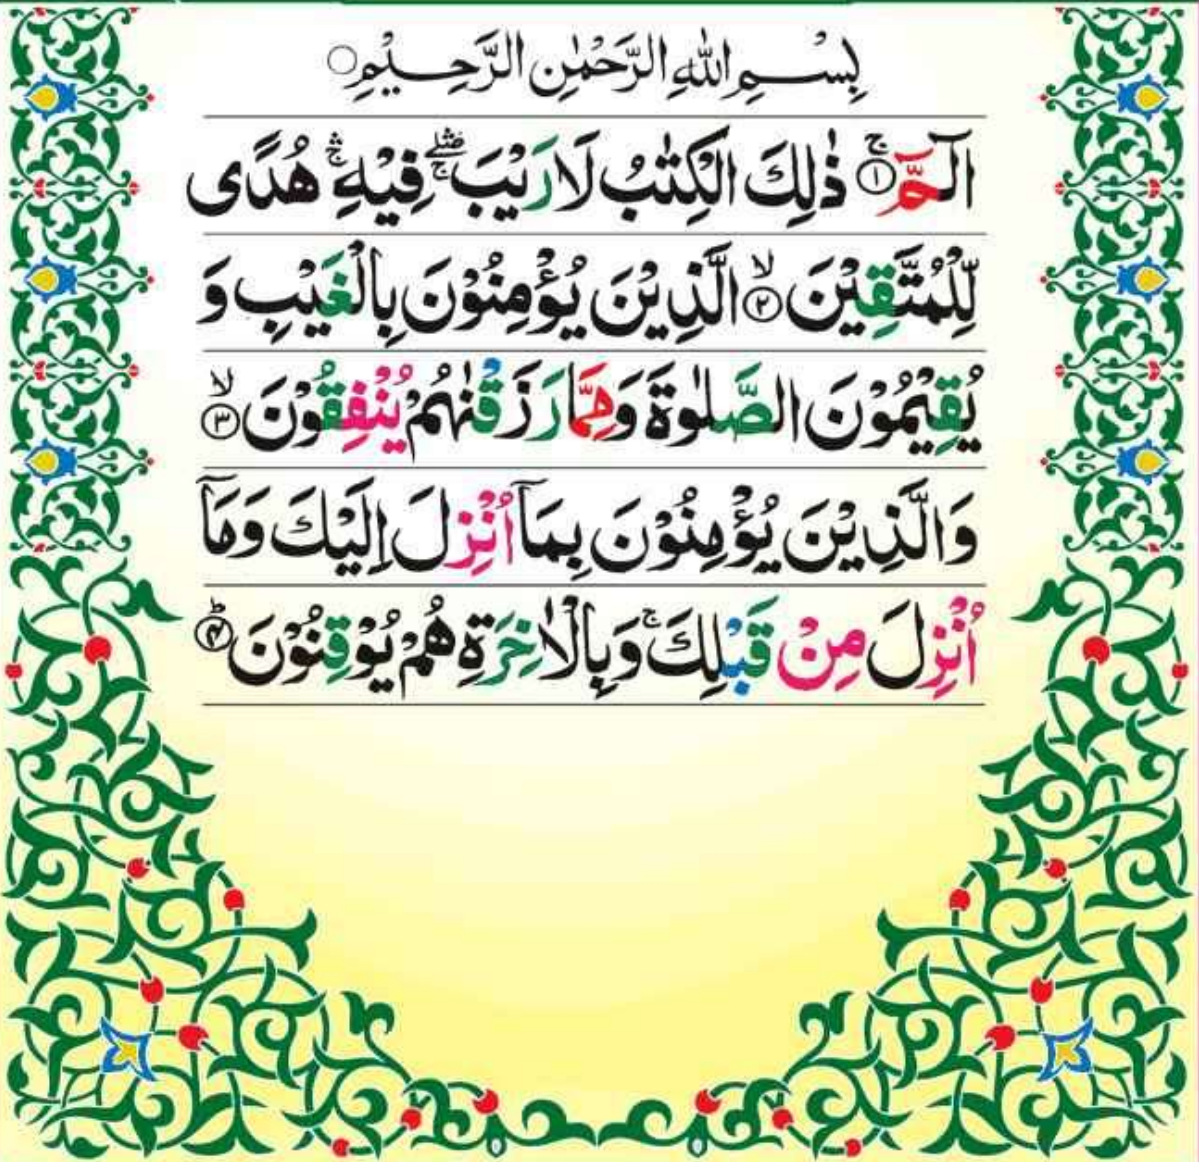 بِسْمِ اللهِ الرَّحْمٰنِ الرَّحِيْمِ○
الٓمّٓ ۚ﴿۱﴾ ذٰلِكَ الْكِتٰبُ لَا رَيْبَ ۛۖۚ فِيْهِ ۛۚ هُدًى
لِّلْمُتَّقِيْنَ ۙ﴿۲﴾ الَّذِيْنَ يُؤْمِنُوْنَ بِالْغَيْبِ وَ
يُقِيْمُوْنَ الصَّلٰوةَ وَمِمَّا رَزَقْنٰهُمْ يُنْفِقُوْنَ ۙ﴿۳﴾
وَالَّذِيْنَ يُؤْمِنُوْنَ بِمَآ اُنْزِلَ اِلَيْكَ وَمَآ
اُنْزِلَ مِنْ قَبْلِكَ ۚ وَبِالْاٰخِرَةِ هُمْ يُوْقِنُوْنَ ؕ﴿۴﴾